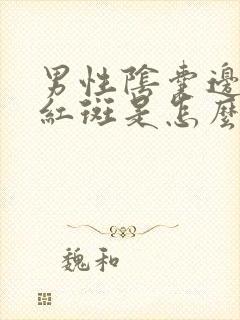 男性陰囊邊
紅斑是怎麼
魏和